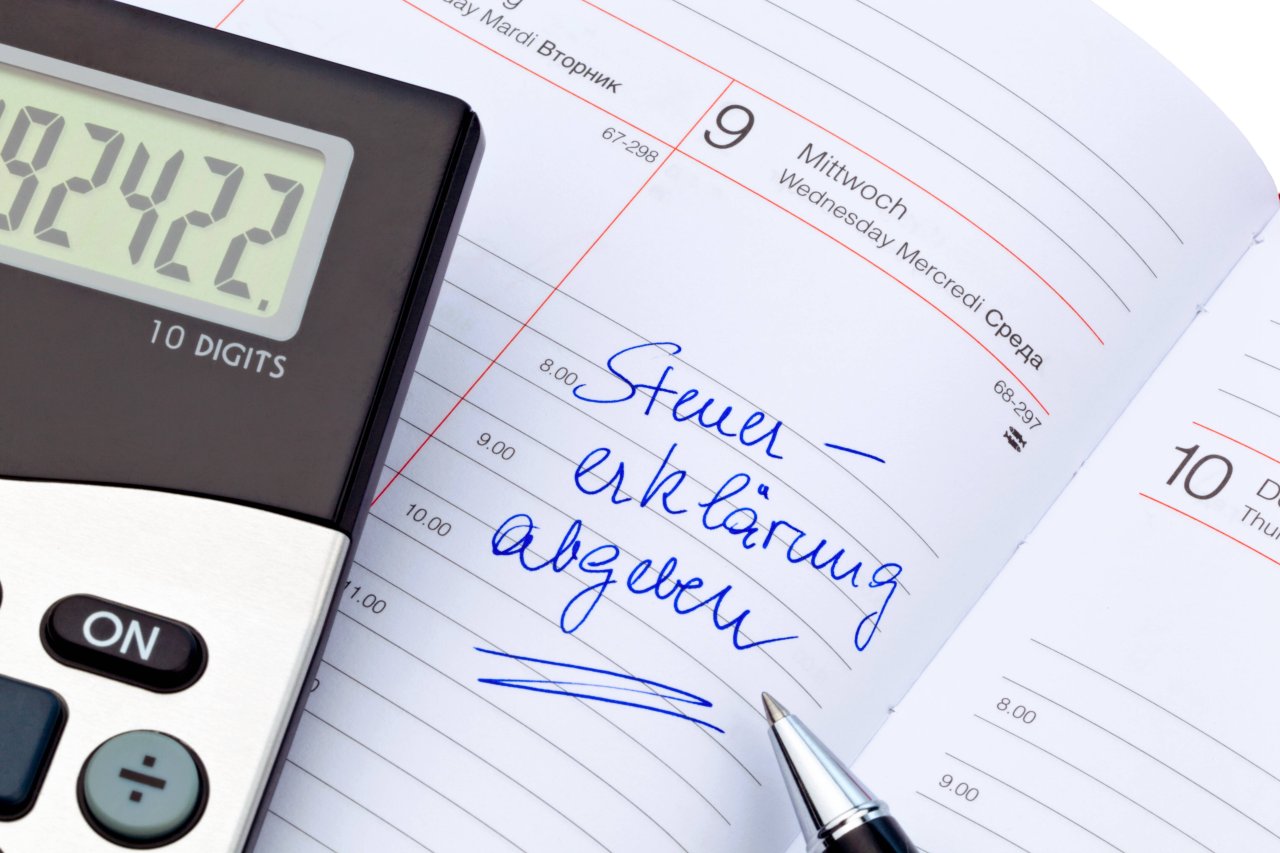 Mardi Вторник
67-298
9
Mittwoch
Wednesday Mercredi Среда
68-297
8.00
9.00
10.00
11.00
Steuer –
erklärung
abgeben
10
8.00
9.00
82422.
10 DIGITS
ON
÷